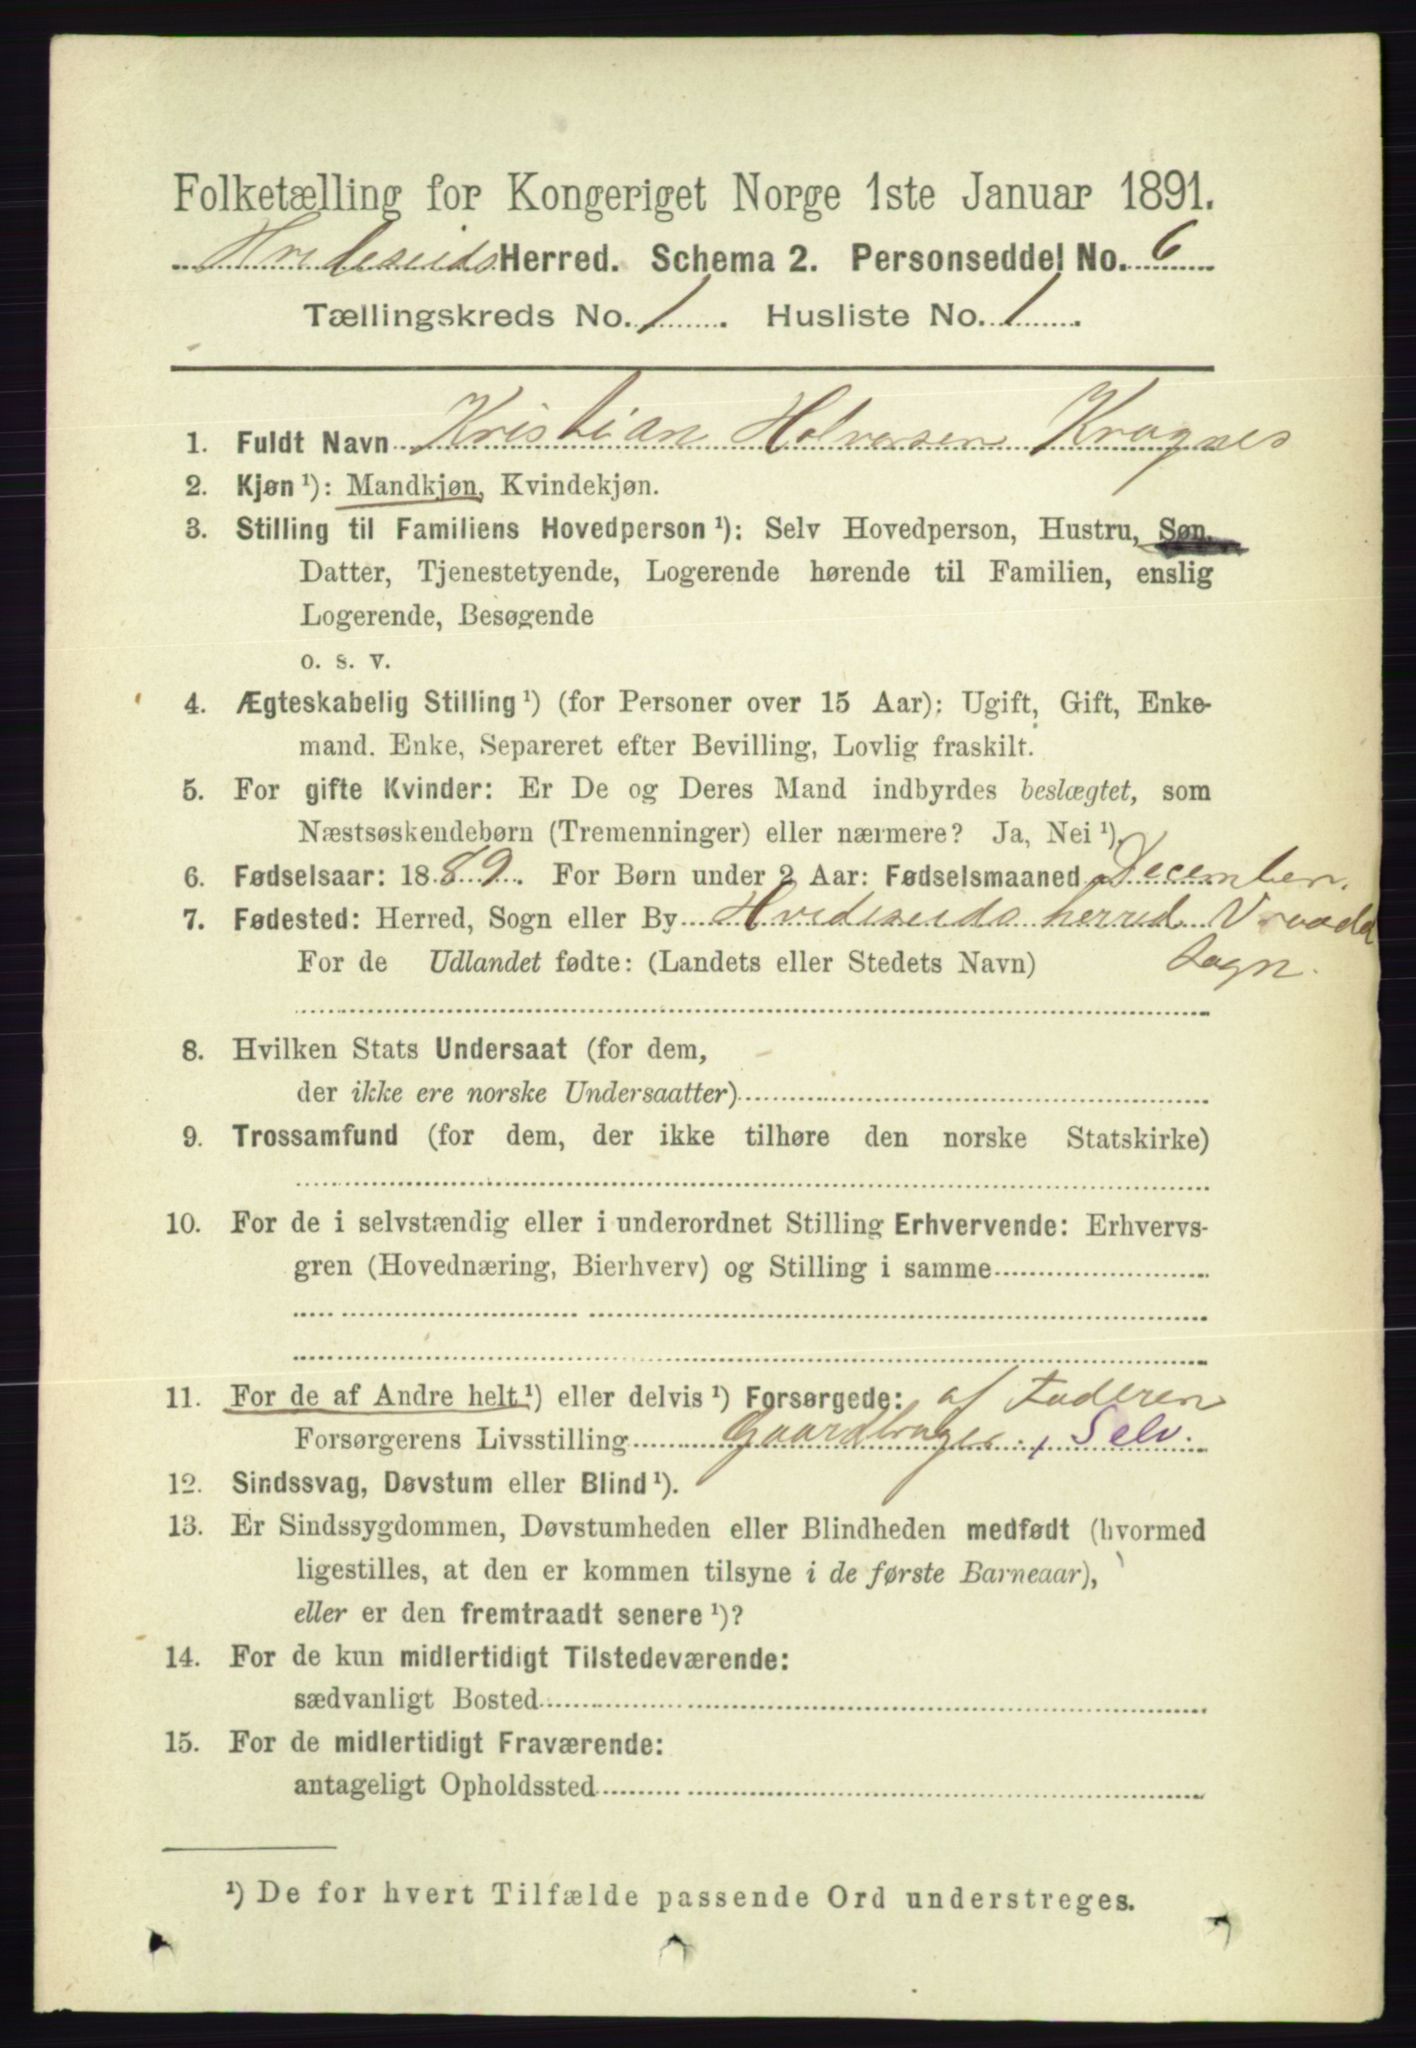 Folketælling for Kongeriget Norge 1ste Januar 1891.
Hvideseids Herred. Schema 2. Personseddel No. 6
Tællingskreds No. 1. Husliste No. 1.
1. Fuldt Navn Kristian Halvorsen Kragnes
2. Kjøn ¹): Mandkjøn, Kvindekjøn.
3. Stilling til Familiens Hovedperson ¹): Selv Hovedperson, Hustru, Søn,
Datter, Tjenestetyende, Logerende hørende til Familien, enslig
Logerende, Besøgende
o. s. v.
4. Ægteskabelig Stilling ¹) (for Personer over 15 Aar): Ugift, Gift, Enke-
mand. Enke, Separeret efter Bevilling, Lovlig fraskilt.
5. For gifte Kvinder: Er De og Deres Mand indbyrdes beslægtet, som
Næstsøskendebørn (Tremenninger) eller nærmere? Ja, Nei ¹).
6. Fødselsaar: 1889. For Børn under 2 Aar: Fødselsmaaned December.
7. Fødested: Herred, Sogn eller By Hvideseids herred Vraadal
For de Udlandet fødte: (Landets eller Stedets Navn) Sogn.
8. Hvilken Stats Undersaat (for dem,
der ikke ere norske Undersaatter)
9. Trossamfund (for dem, der ikke tilhøre den norske Statskirke)
10. For de i selvstændig eller i underordnet Stilling Erhvervende: Erhvervs-
gren (Hovednæring, Bierhverv) og Stilling i samme
11. For de af Andre helt ¹) eller delvis ¹) Forsørgede: af Faderen
Forsørgerens Livsstilling Gaardbruger, Selv.
12. Sindssvag, Døvstum eller Blind ¹).
13. Er Sindssygdommen, Døvstumheden eller Blindheden medfødt (hvormed
ligestilles, at den er kommen tilsyne i de første Barneaar),
eller er den fremtraadt senere ¹)?
14. For de kun midlertidigt Tilstedeværende:
sædvanligt Bosted
15. For de midlertidigt Fraværende:
antageligt Opholdssted
¹) De for hvert Tilfælde passende Ord understreges.